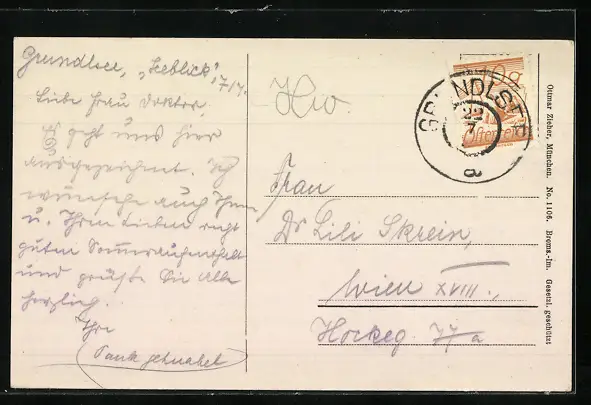 Grundlsee, "Seeblick", 7/7.
Liebe Frau Doktor,
Es geht uns hier
ausgezeichnet. Ich
wünsche auch Ihnen
u. Ihren Lieben recht
guten Sommeraufenthalt
und grüße Sie alle
herzlich.
Ihre
GRUNDLSEE
22
7
8
Frau
Dr Lili Skrein,
Wien XVIII.,
Hockeg. 77a
Ottmar Zieher, München. No. 1106. Broms.-Im. Gesetzl. geschützt